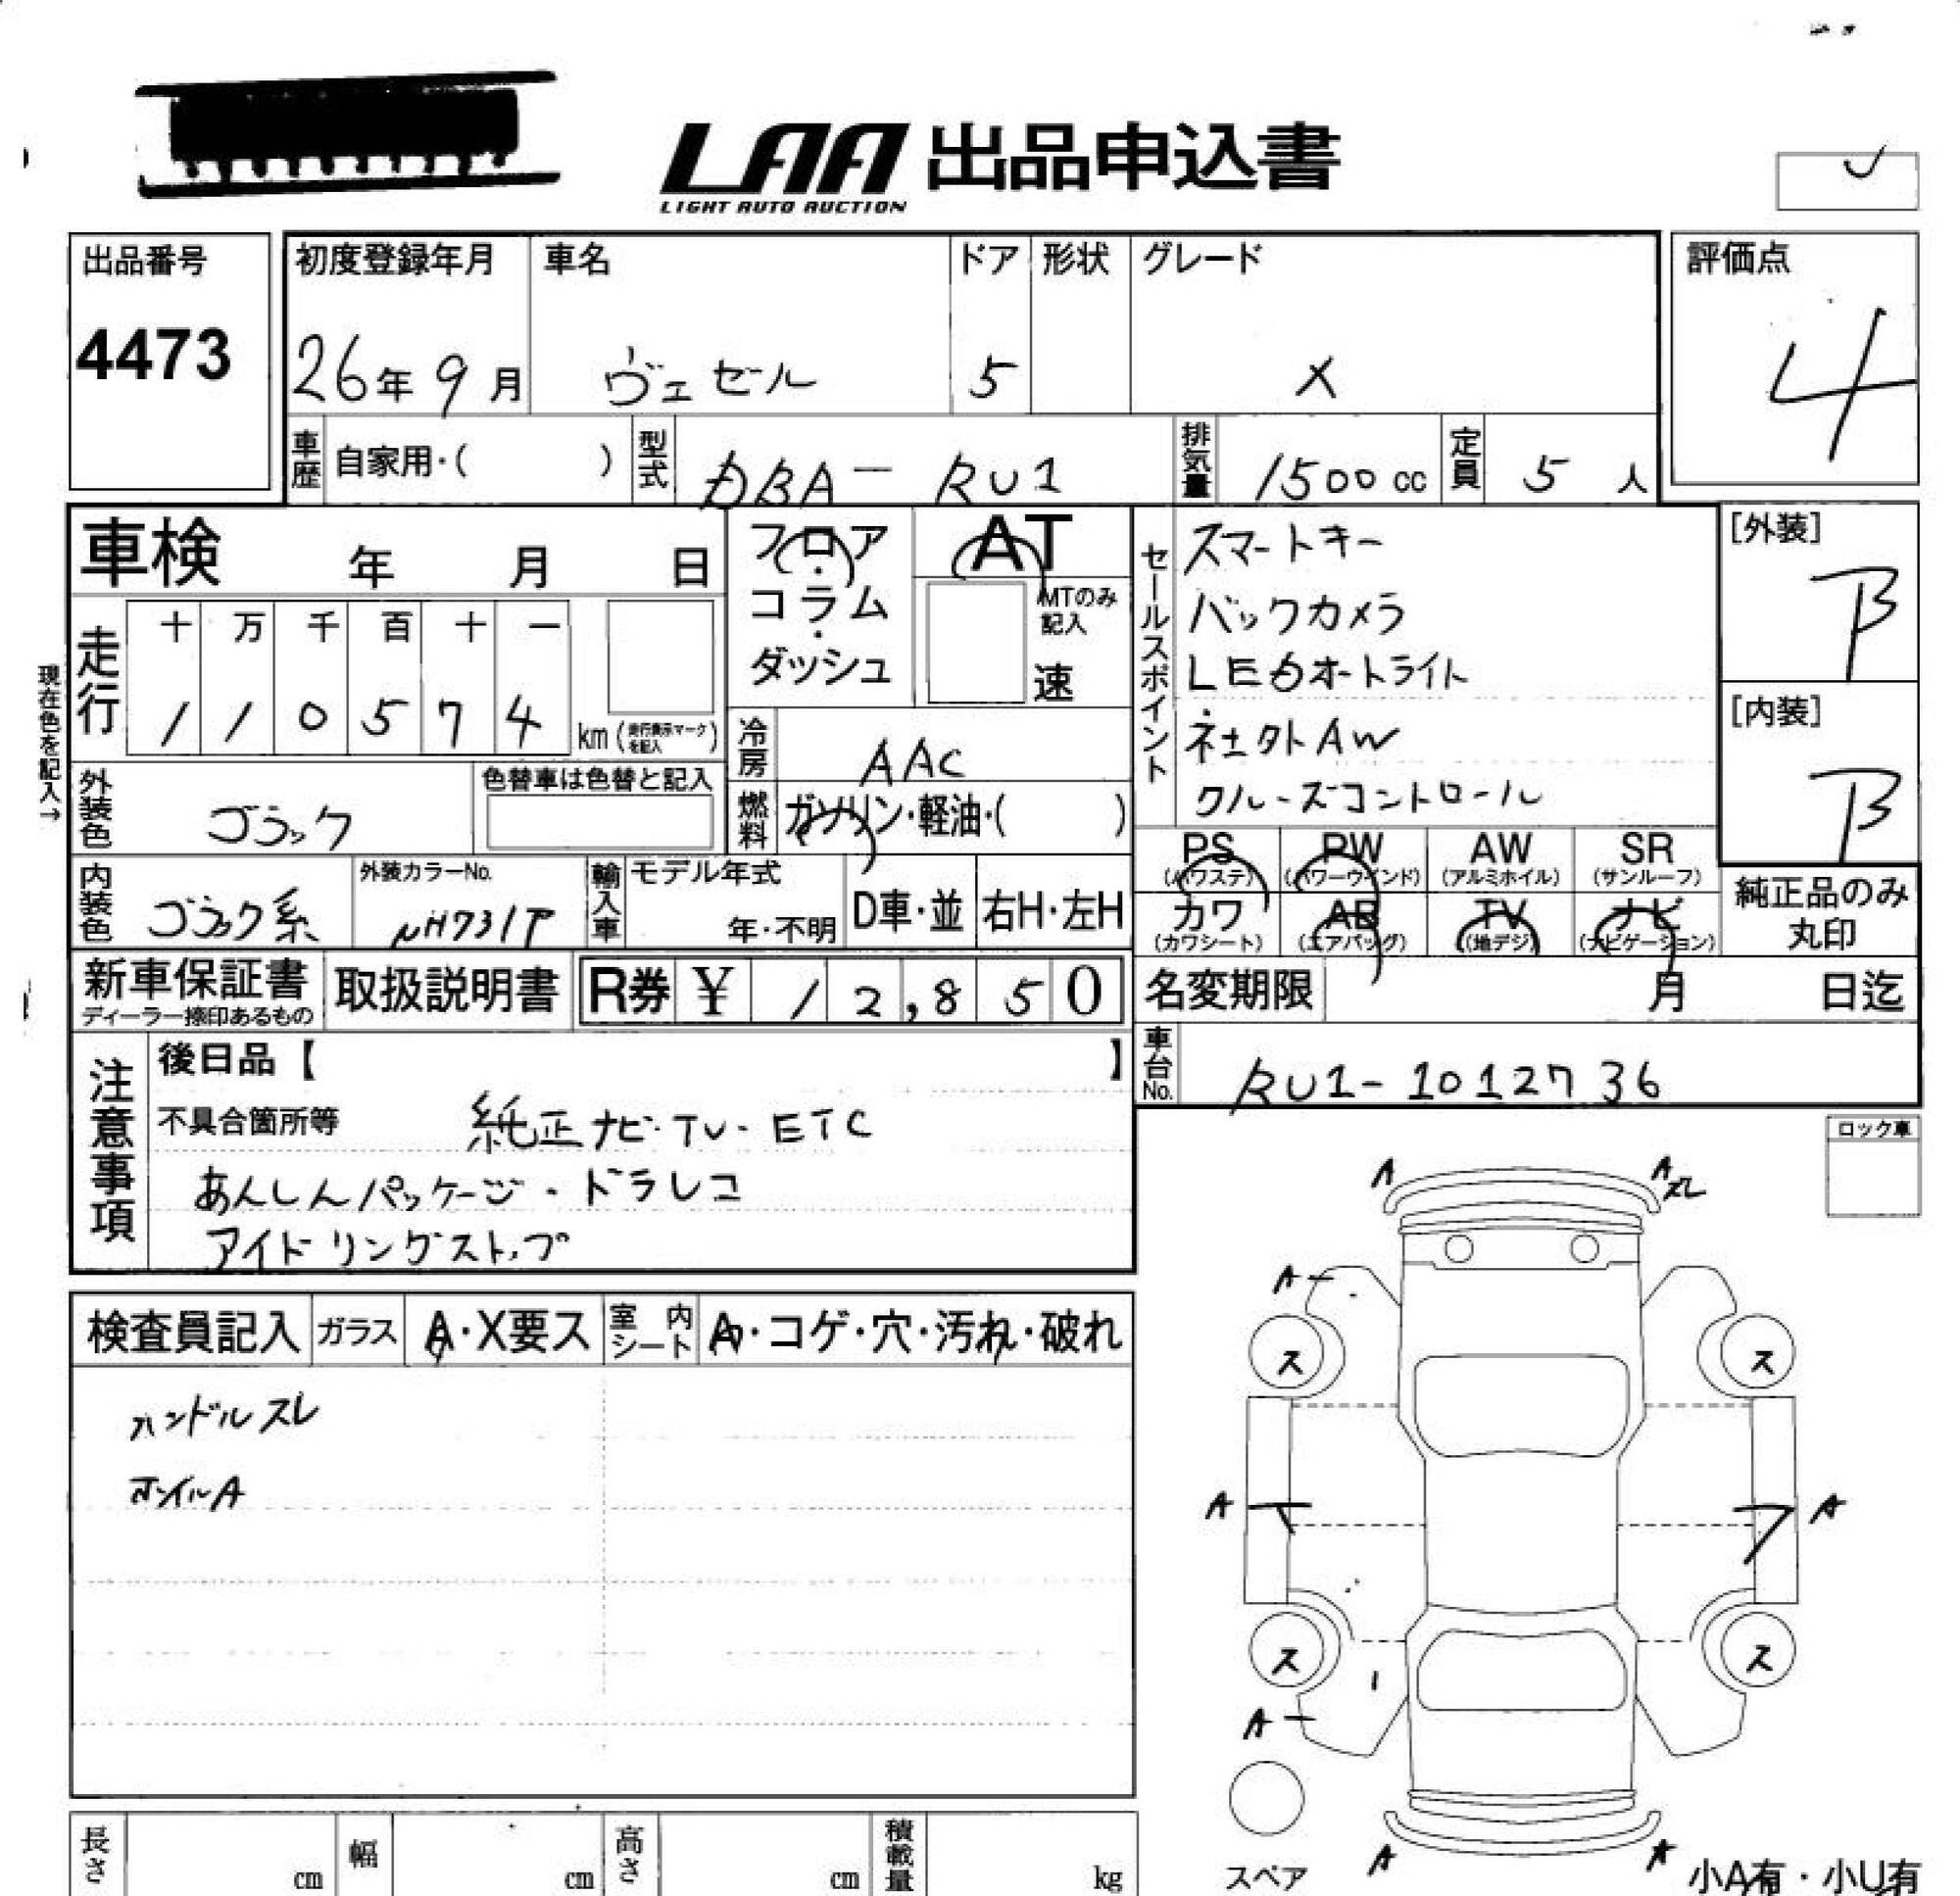 LAA 出品申込書
LIGHT AUTO AUCTION
出品番号
4473
初度登録年月
26年9月
車名
ヴェゼル
ドア
5
形状
グレード
X
評価点
4
車歴 自家用・( )
型式 DBA-RU1
排気量 1500cc
定員 5人
車検 年 月 日
フロア・コラム・ダッシュ
AT
MTのみ記入
速
セールスポイント
スマートキー
バックカメラ
LEDオートライト
社外AW
クルーズコントロール
[外装]
B
[内装]
B
現在色を記入→
走行
十 万 千 百 十 一
1 1 0 5 7 4 km (走行表示マークを記入)
冷房 AAC
燃料 ガソリン・軽油・( )
外装色
色替車は色替と記入
内装色
外装カラーNo.
NH731P
輸入車
モデル年式
年・不明
D車・並
右H・左H
PS (パワステ)
PW (パワーウインド)
AW (アルミホイル)
SR (サンルーフ)
カワ (カワシート)
AB (エアバッグ)
TV (地デジ)
ナビ (ナビゲーション)
純正品のみ丸印
新車保証書
ディーラー捺印あるもの
取扱説明書
R券 ¥ 12,850
名変期限 月 日迄
車台No. RU1-1012736
注意事項
後日品【 】
不具合箇所等 純正ナビ・TV・ETC
あんしんパッケージ・ドラレコ
アイドリングストップ
ロック車
検査員記入
ガラス A・X要ス
室内シート A・コゲ・穴・汚れ・破れ
ハンドルスレ
ホイルA
A A スレ
A
ス ス
A A
ス ス
A
A
スペア
小A有・小U有
長さ cm
幅 cm
高さ cm
積載量 kg